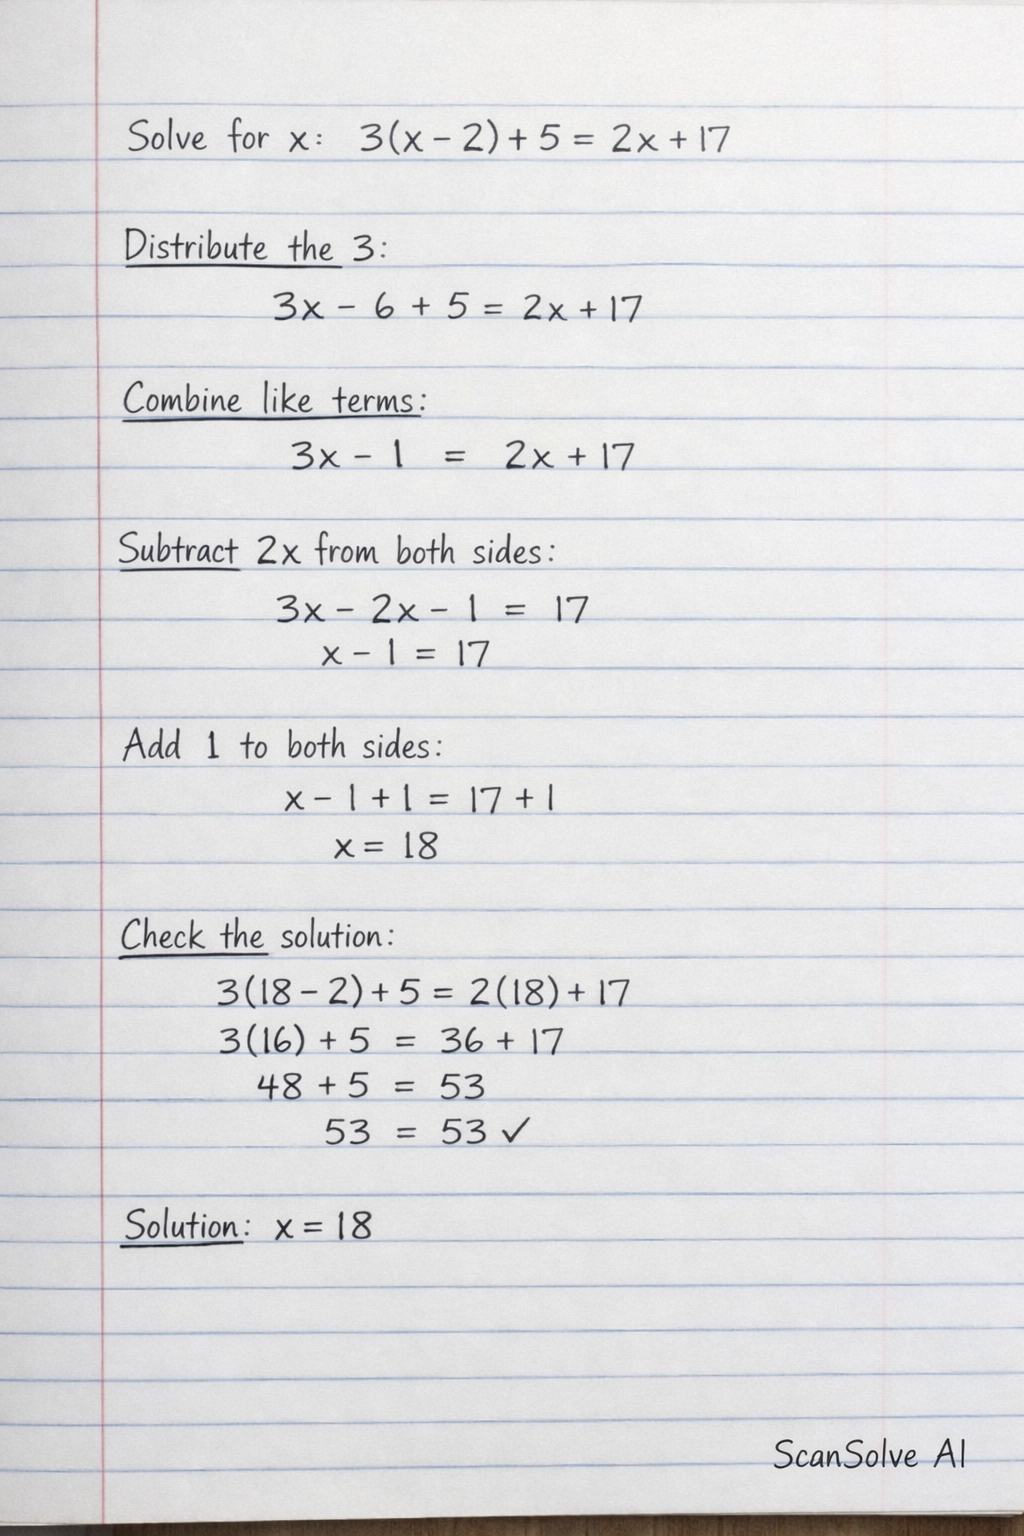 Solve for x: 3(x - 2) + 5 = 2x + 17
Distribute the 3:
3x - 6 + 5 = 2x + 17
Combine like terms:
3x - 1 = 2x + 17
Subtract 2x from both sides:
3x - 2x - 1 = 17
x - 1 = 17
Add 1 to both sides:
x - 1 + 1 = 17 + 1
x = 18
Check the solution:
3(18 - 2) + 5 = 2(18) + 17
3(16) + 5 = 36 + 17
48 + 5 = 53
53 = 53 ✓
Solution: x = 18
ScanSolve AI